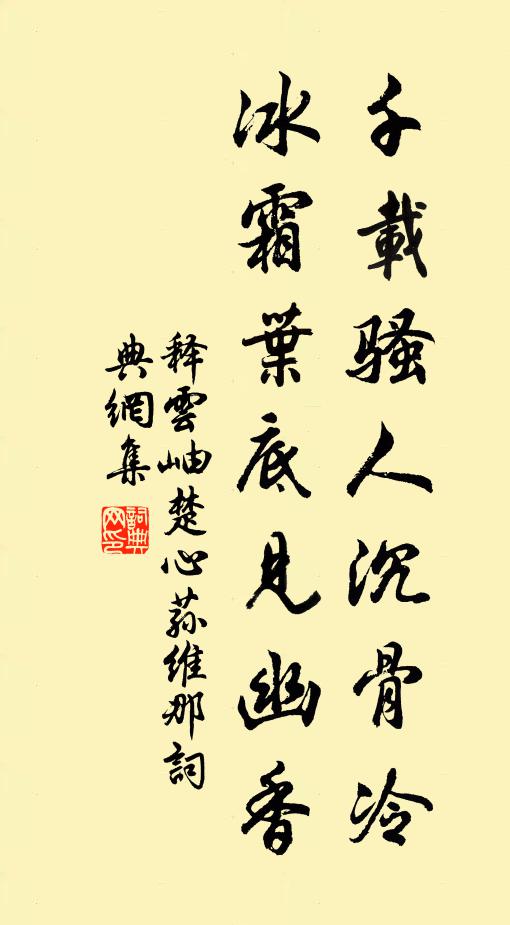 千載騷人沉骨冷
冰霜葉底見幽香
釋雲岫楚心蓀維那詞
典網集
詞典網印